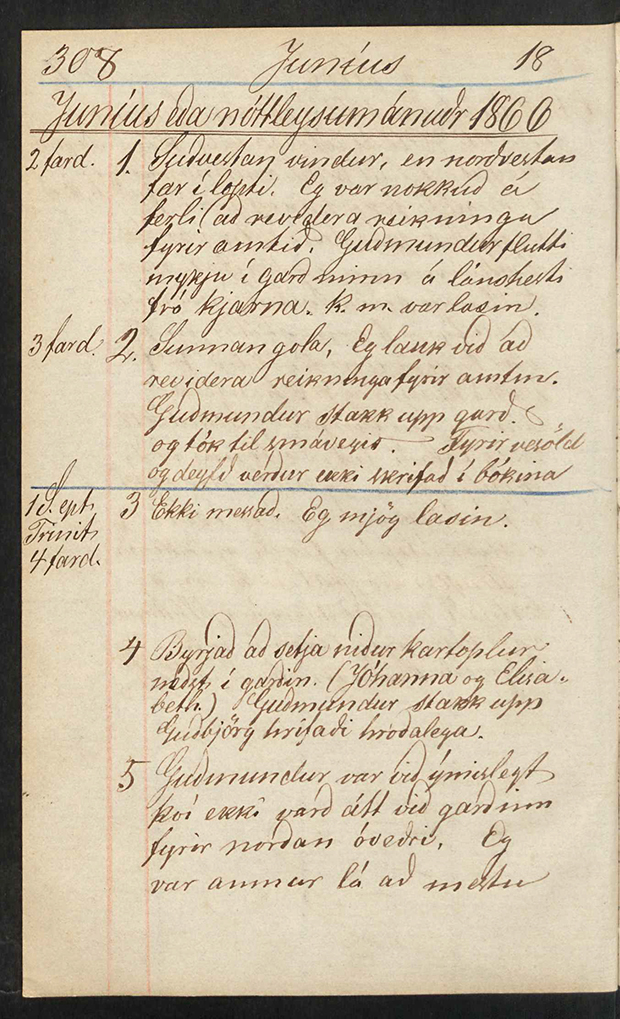 308 Juníus 18
Juníus eða nóttleysumánuðr 1866
2 fard. 1. Suðvestan vindur, en norðvestan
far í lopti. Eg var nokkuð á
ferli (að revidera reikninga
fyrir amtið. Guðmundur flutti
mykju í garð minn á láns hesti
frá Kjarna. K. m. var lasin.
3 fard. 2. Sunnan gola, Eg lauk við að
revidera reikninga fyrir amtm.
Guðmundur stakk upp garð.
og tók til smávegis. Fyrir vesöld
og deyfð verður ekki skrifað í bókina
1 S. ept. 3 Ekki messað. Eg mjög lasin.
Trinit.
4 fard.
4 Byrjað að setja niður kartoplur
neðst í garðin. (Jóhanna og Elisa-
beth.) Guðmundur stakk upp
Guðbjörg hrífaði hroðalega.
5 Guðmundur var við ýmislegt
því ekki varð átt við garðinn
fyrir norðan óveðri. Eg
var aumur lá að mestu